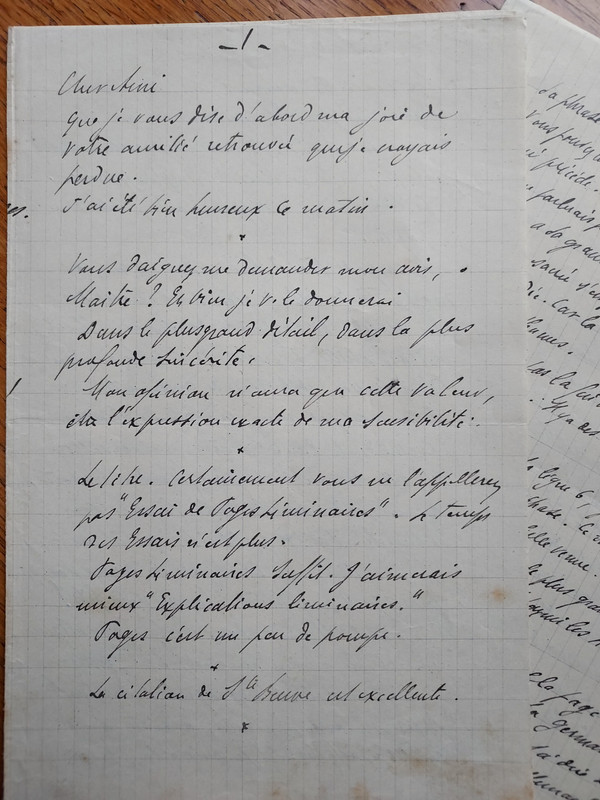 -1-
Cher Ami
que je vous dise d'abord ma joie de
votre amitié retrouvée que je croyais
perdue.
J'ai été bien heureux ce matin.
Vous daignez me demander mon avis,
Maître ? Eh bien je v. le donnerai
Dans le plus grand détail, dans la plus
profonde sincérité.
Mon opinion n'aura que cette valeur,
être l'expression exacte de ma sensibilité.
Le titre. Certainement vous ne l'appellerez
pas "Essai de Pages Liminaires". Le temps
des Essais n'est plus.
Pages Liminaires suffit. J'aimerais
mieux "Explications liminaires."
Pages c'est un peu de pompe.
La citation de Ste Beuve est excellente.
la phrase
précède.
a la grand
sacré s'en
Car la
la ligne 6
le plus gran
la page